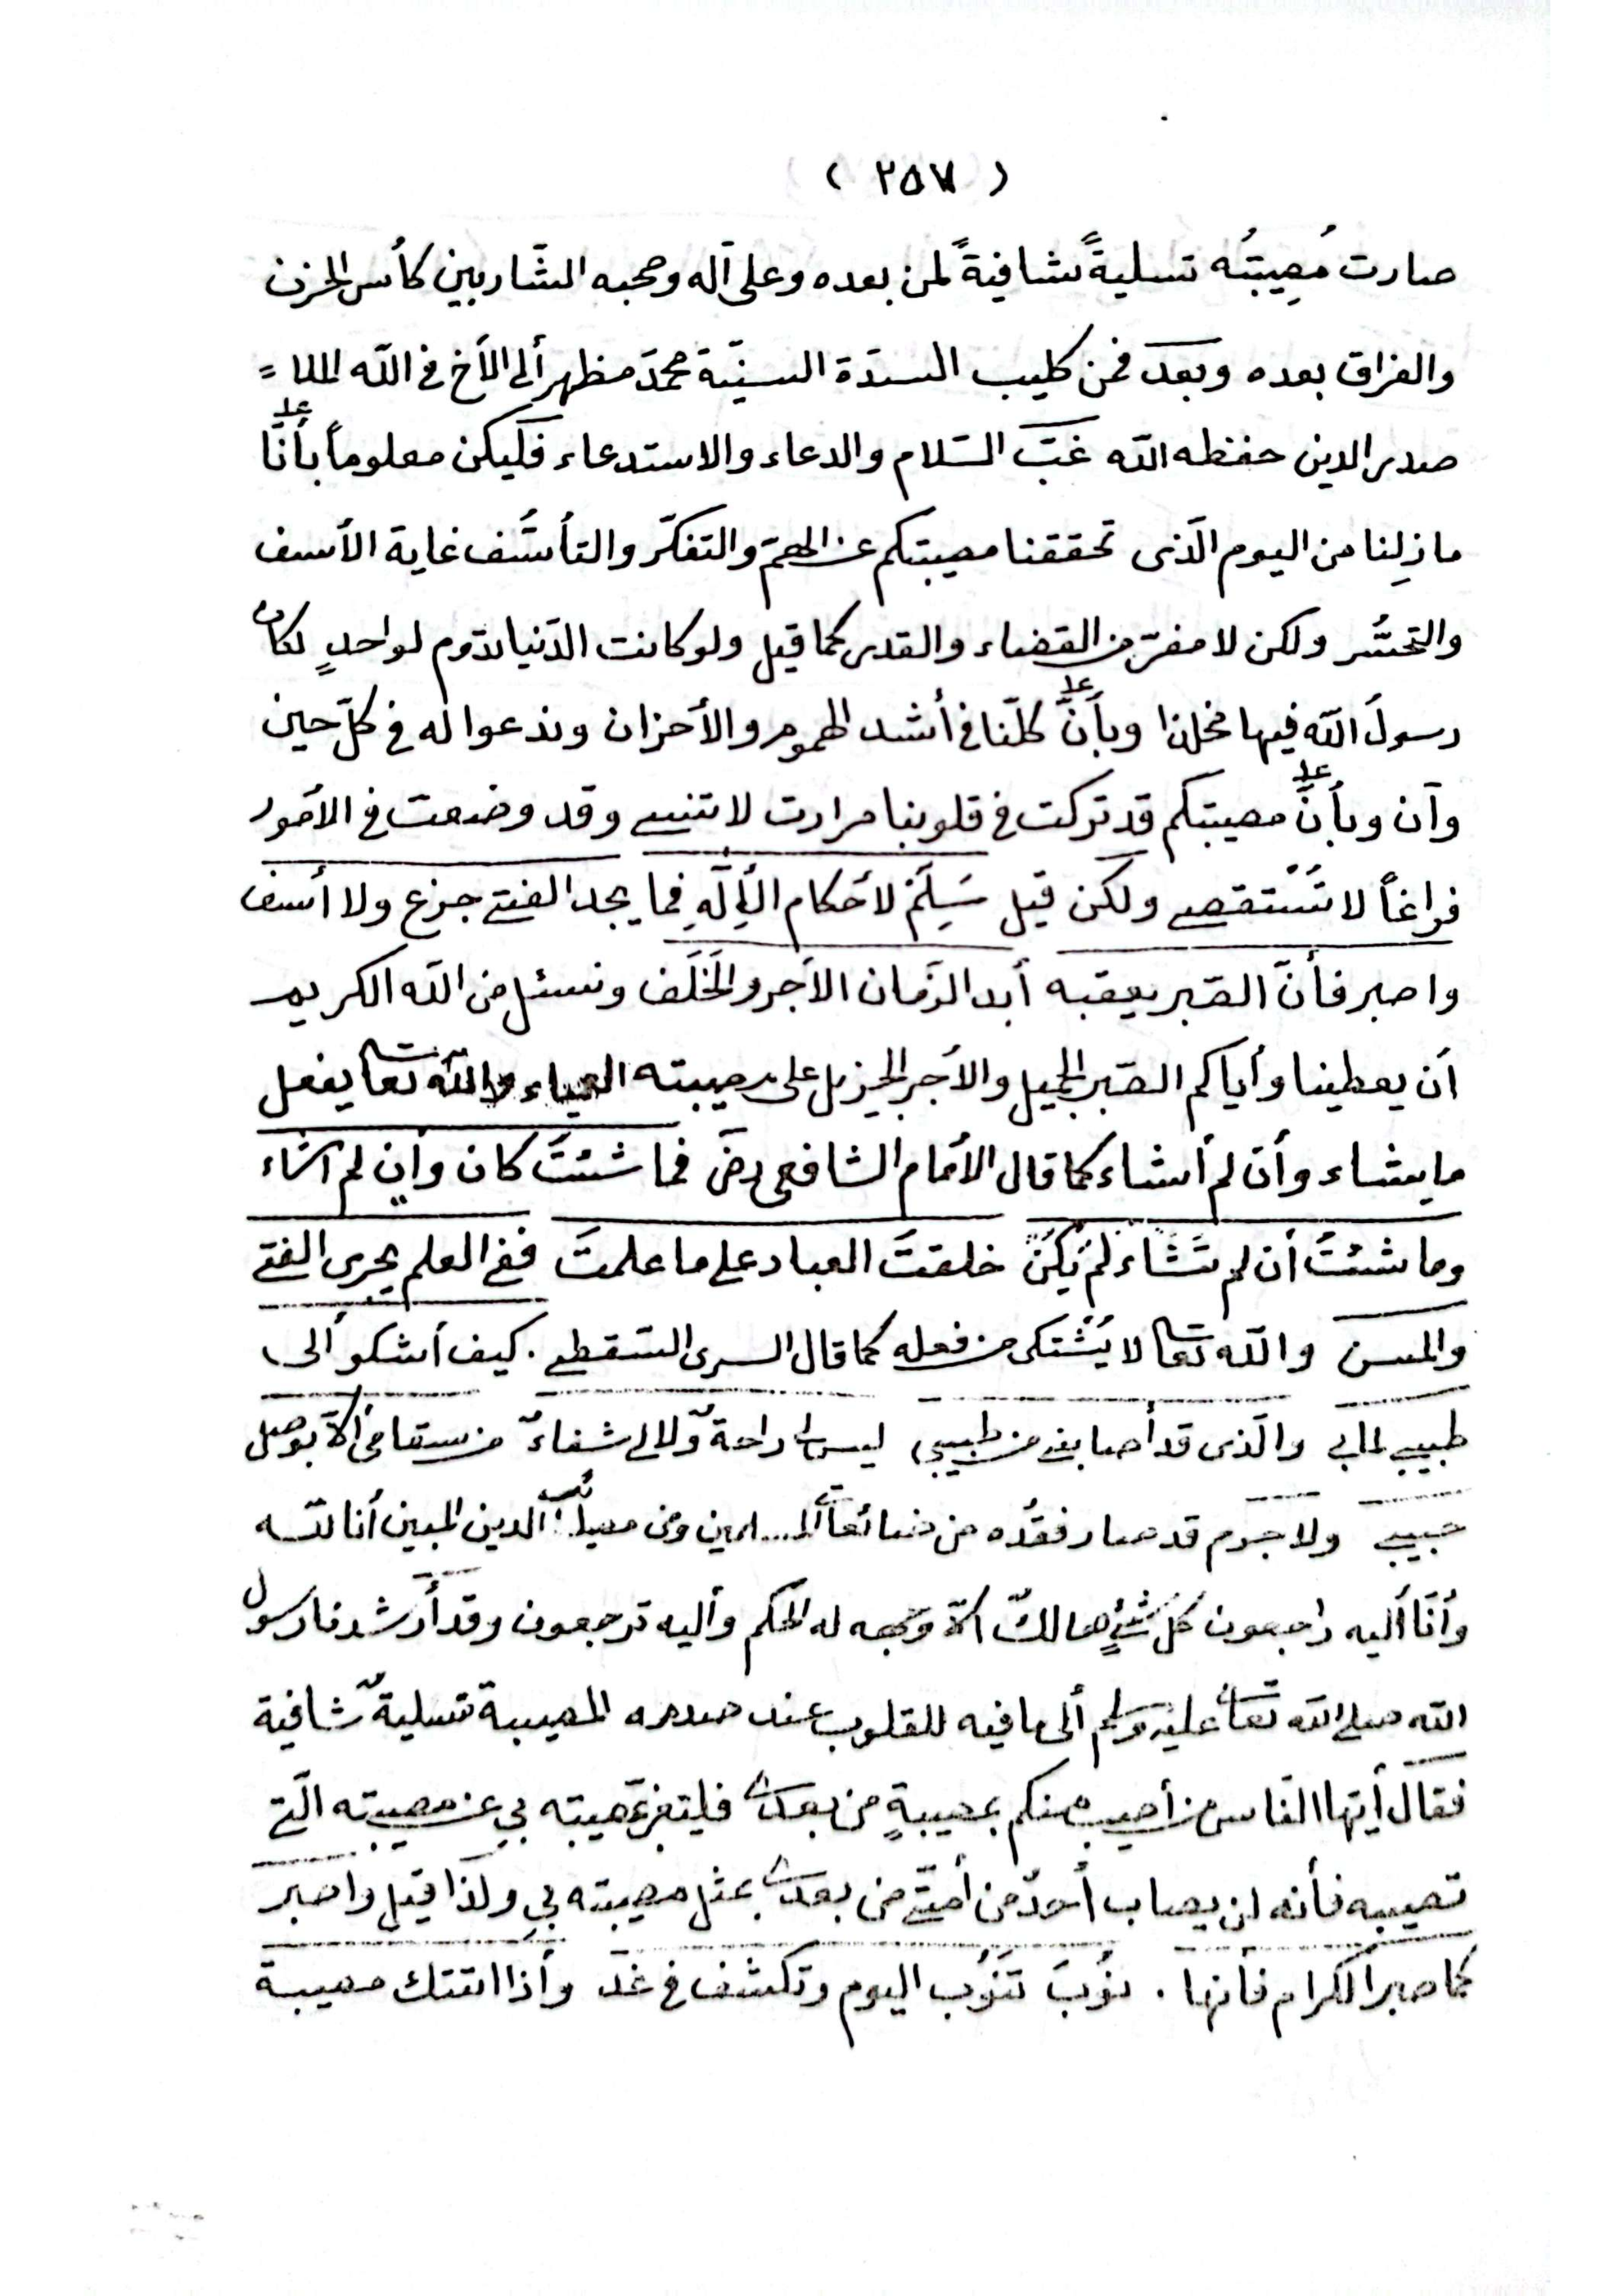 ( ٢٥٧ )
صارت مُصِيبتُه تسليةً شافيةً لمن بعده وعلى آله وصحبه الشّاربين كأس الحزن
والفراق بعده وبعد فمن كليب السدّة السنيّة محمّد مظهر ألى الأخ في الله الملا =
صدر الدين حفظه الله غبّ السّلام والدعاء والاستدعاء فليكن معلوماً بأنّا
ما زِلنا من اليوم الّذى تحققنا مصيبتكم عن الهمّ والتفكّر والتأسُّف غاية الأسف
والتحسُّر ولكن لا مفرّ من القضاء والقدر كما قيل ولو كانت الدّنيا تدوم لواحدٍ لكان
رسولُ الله فيها مخلدا وبأنَّ كلّنا في أشد الهموم والأحزان وندعوا له في كلّ حين
وآن وبأنَّ مصيبتكم قد تركت في قلوبنا مرارت لا تنسى وقد وضعت في الأمور
فراغاً لا تُسْتقصى ولكن قيل سَلِّمْ لأحكام الأِلَهِ فما يجد الفتى جزع ولا أسف
واصبر فأنّ الصّبر يعقبه أبد الزّمان الأجر والخَلَف ونسئل من الله الكريم
أن يعطينا وأياكم الصّبر الجميل والأجر الجزيل على مصيبته والله تعا يفعل
ما يشاء وأن لم أشاء كما قال الأمام الشافعى رض فما شئتَ كان وأن لم أشاء
وما شئتُ أن لم تَشَاء لَمْ يَكُنْ خلقتَ العباد على ما علمتَ ففي العلم يجرى الفتى
والمسن والله تعا لا يُشْتكى من فعله كما قال السرى السّقطى . كيف أشكو ألى
طبيبى لما بى والّذى قد أصابنى من طبيبى ليس لى راحةٌ ولا لى شفاءٌ من سقامى ألّا بوصل
حبيبى ولا جرم قد صار فقدُه من ضائعات المسلمين ومن الدين المبين أنا لله
وأنّا أليه راجعون كلّ شئٍ هالكٌ الّا وجهه له الحكم وأليه ترجعون وقد أرشدنا رسول
الله صلى الله تعا عليه وسلم ألى ما فيه للقلوب عند صدمه المصيبة تسليةٌ شافية
فقال أيّها النّاس من أصيب منكم بمصيبةٍ من بعدى فليتعزّ بمصيبته بي عن مصيبته الّتى
تصيبه فأنه لن يصاب أحدٌ من أمّتى من بعدى بمثل مصيبته بي ولذا قيل واصبر
كما صبر الكرام فأنها . نُوَبَ تَنُوب اليوم وتكشف في غد وأذا اتتك مصيبة